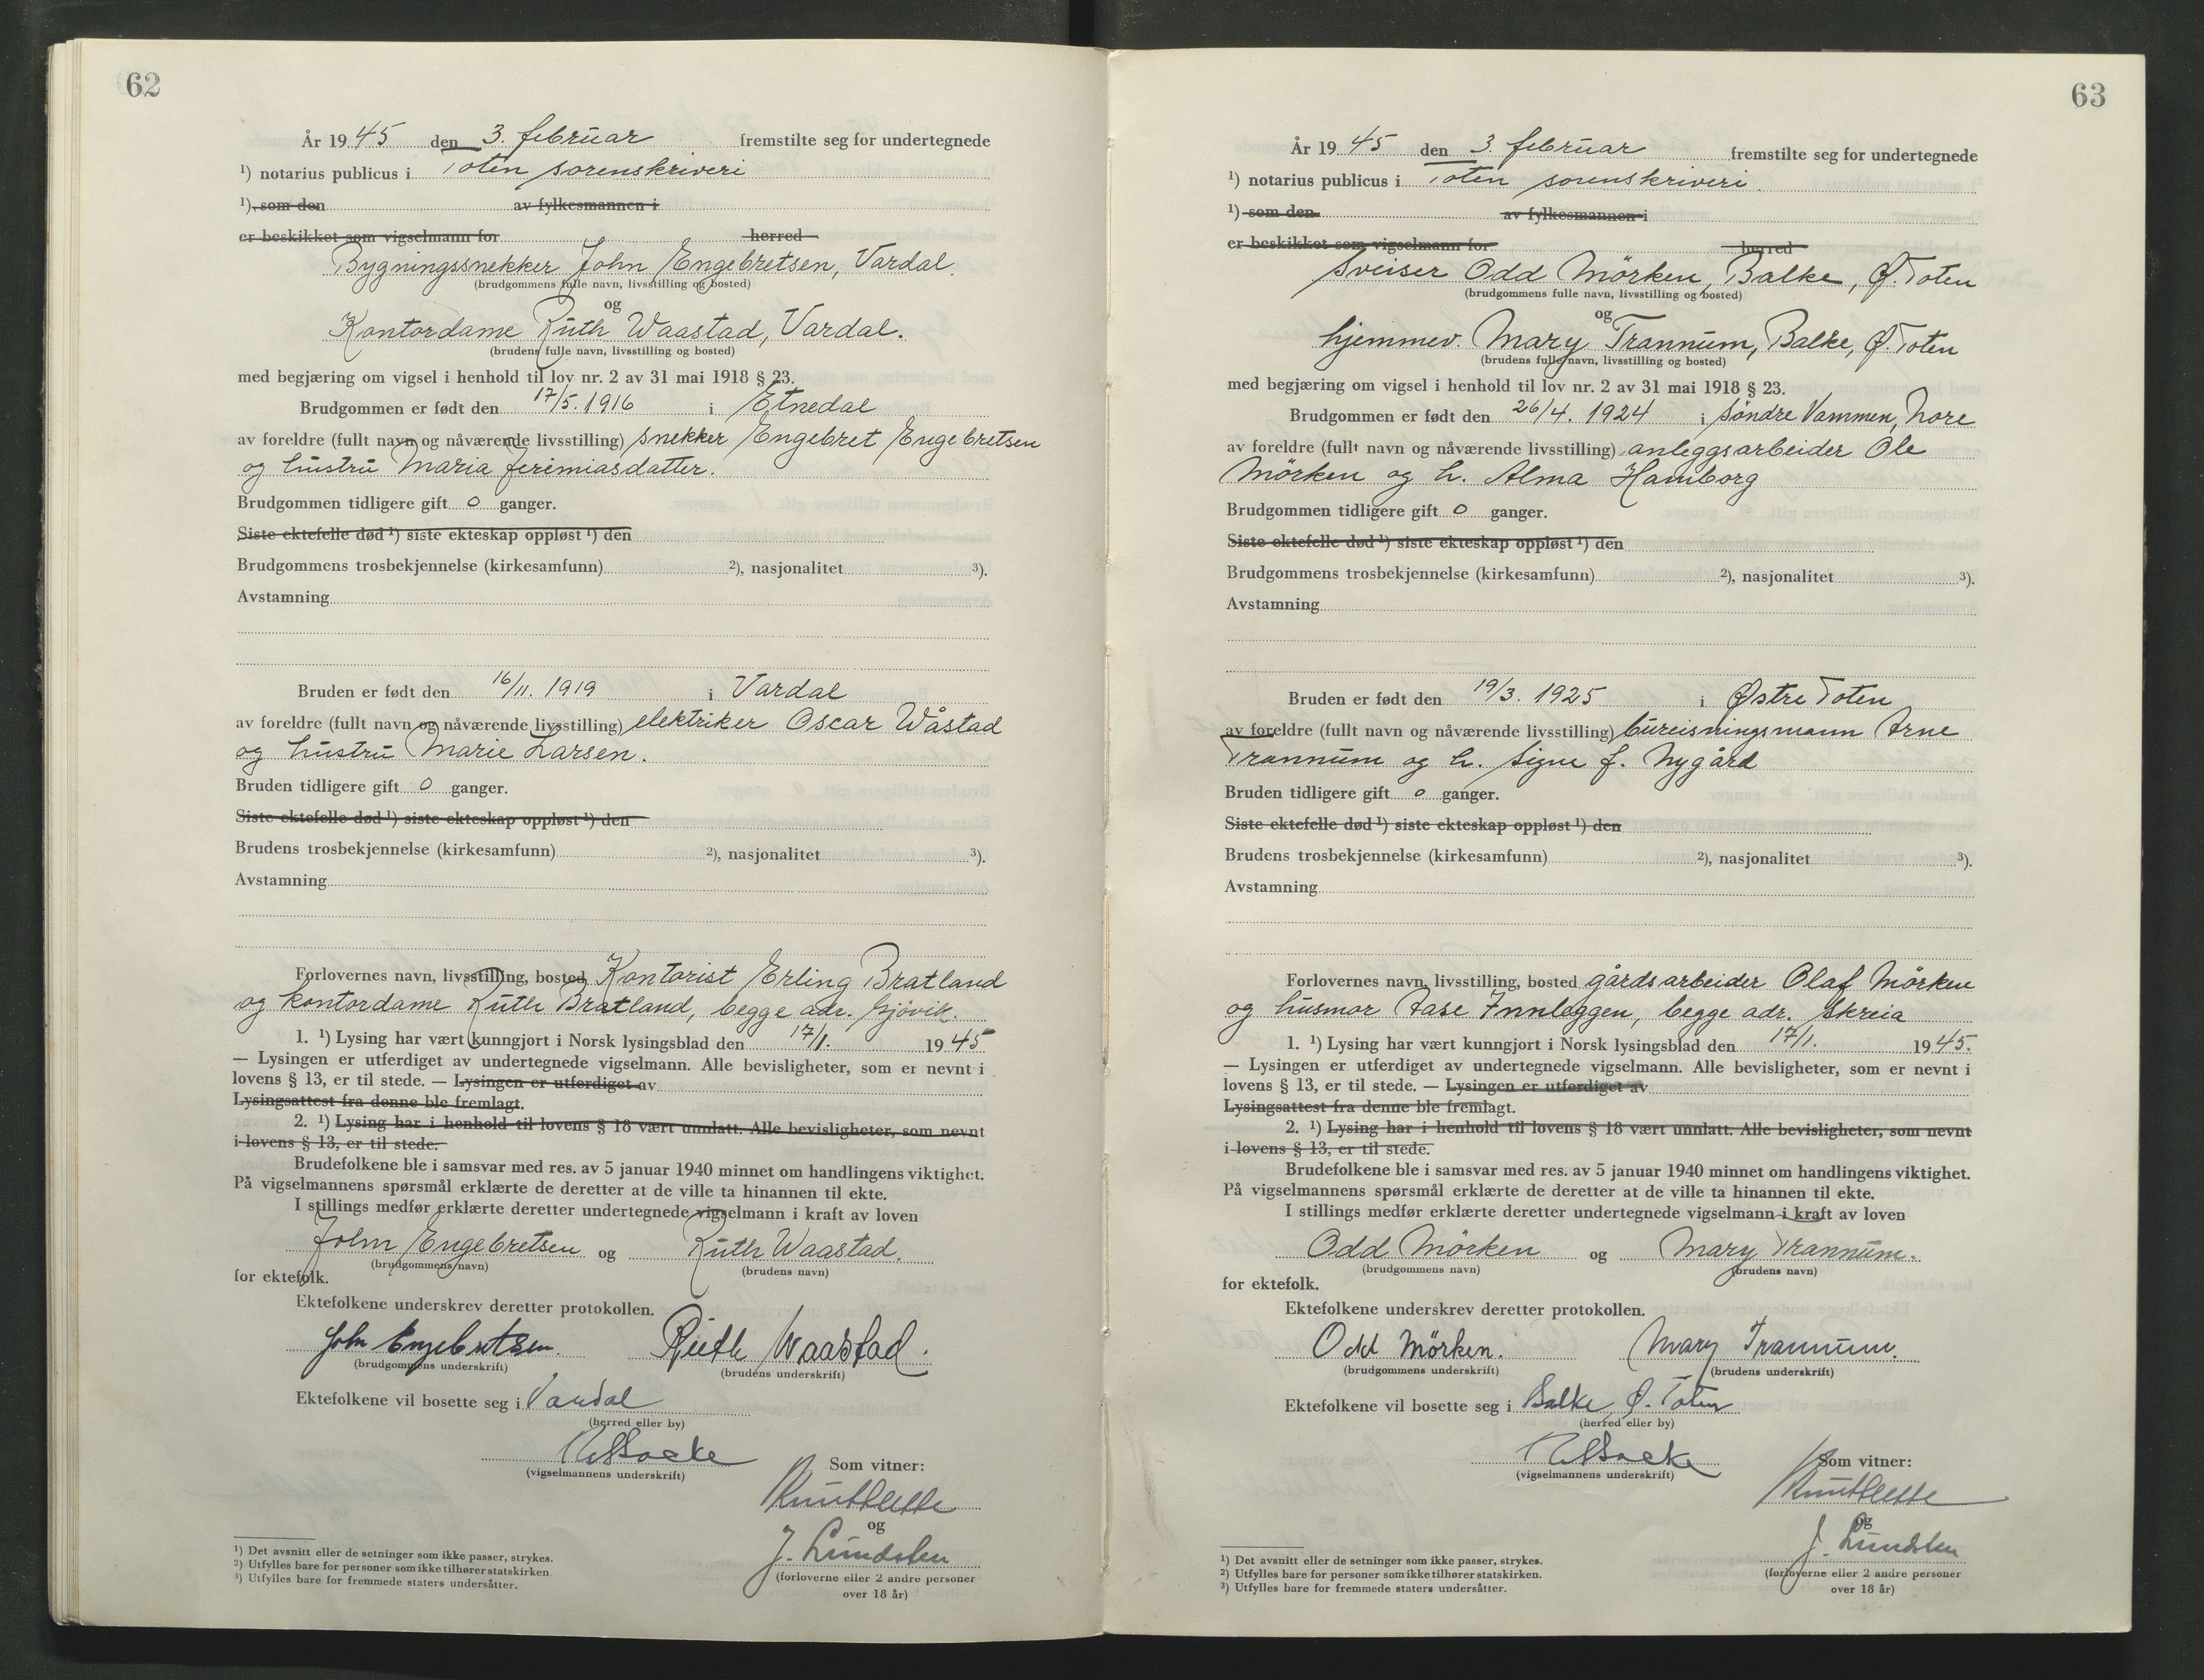 62
År 1945 den 3. februar fremstilte seg for undertegnede
¹) notarius publicus i Toten sorenskriveri
¹) som den av fylkesmannen i
er beskikket som vigselmann for herred
Bygningssnekker John Engebretsen, Vardal.
(brudgommens fulle navn, livsstilling og bosted)
og
Kontordame Ruth Waastad, Vardal.
(brudens fulle navn, livsstilling og bosted)
med begjæring om vigsel i henhold til lov nr. 2 av 31 mai 1918 § 23.
Brudgommen er født den 17/5. 1916 i Etnedal
av foreldre (fullt navn og nåværende livsstilling) snekker Engebret Engebretsen
og hustru Maria Jeremiasdatter.
Brudgommen tidligere gift 0 ganger.
Siste ektefelle død ¹) siste ekteskap oppløst ¹) den
Brudgommens trosbekjennelse (kirkesamfunn) ²), nasjonalitet ³).
Avstamning
Bruden er født den 16/11. 1919 i Vardal
av foreldre (fullt navn og nåværende livsstilling) elektriker Oscar Wåstad
og hustru Marie Larsen.
Bruden tidligere gift 0 ganger.
Siste ektefelle død ¹) siste ekteskap oppløst ¹) den
Brudens trosbekjennelse (kirkesamfunn) ²), nasjonalitet ³).
Avstamning
Forlovernes navn, livsstilling, bosted Kontorist Erling Bratland
og kontordame Ruth Bratland, begge adr. Gjövik.
1. ¹) Lysing har vært kunngjort i Norsk lysingsblad den 17/1. 1945
— Lysingen er utferdiget av undertegnede vigselmann. Alle bevisligheter, som er nevnt i
lovens § 13, er til stede. — Lysingen er utferdiget av
Lysingsattest fra denne ble fremlagt.
2. ¹) Lysing har i henhold til lovens § 18 vært unnlatt. Alle bevisligheter, som nevnt
i lovens § 13, er til stede.
Brudefolkene ble i samsvar med res. av 5 januar 1940 minnet om handlingens viktighet.
På vigselmannens spørsmål erklærte de deretter at de ville ta hinannen til ekte.
I stillings medfør erklærte deretter undertegnede vigselmann i kraft av loven
John Engebretsen og Ruth Waastad.
(brudgommens navn) (brudens navn)
for ektefolk.
Ektefolkene underskrev deretter protokollen.
John Engebretsen. Ruth Waastad.
(brudgommens underskrift) (brudens underskrift)
Ektefolkene vil bosette seg i Vardal
(herred eller by)
(vigselmannens underskrift)
Som vitner:
og
J. Lundsten
(forloverne eller 2 andre personer
over 18 år)
¹) Det avsnitt eller de setninger som ikke passer, strykes.
²) Utfylles bare for personer som ikke tilhører statskirken.
³) Utfylles bare for fremmede staters undersåtter.
63
År 1945 den 3. februar fremstilte seg for undertegnede
¹) notarius publicus i Toten sorenskriveri.
¹) som den av fylkesmannen i
er beskikket som vigselmann for herred
Sveiser Odd Mörken, Balke, Ø. Toten
(brudgommens fulle navn, livsstilling og bosted)
og
hjemmev. Mary Trannum, Balke, Ø. Toten
(brudens fulle navn, livsstilling og bosted)
med begjæring om vigsel i henhold til lov nr. 2 av 31 mai 1918 § 23.
Brudgommen er født den 26/4. 1924 i Söndre Vammen, Nore
av foreldre (fullt navn og nåværende livsstilling) anleggsarbeider Ole
Mörken og h. Alma Hamborg
Brudgommen tidligere gift 0 ganger.
Siste ektefelle død ¹) siste ekteskap oppløst ¹) den
Brudgommens trosbekjennelse (kirkesamfunn) ²), nasjonalitet ³).
Avstamning
Bruden er født den 19/3. 1925 i Østre Toten
av foreldre (fullt navn og nåværende livsstilling) bureisningsmann Arne
Trannum og h. Signe f. Nygård
Bruden tidligere gift 0 ganger.
Siste ektefelle død ¹) siste ekteskap oppløst ¹) den
Brudens trosbekjennelse (kirkesamfunn) ²), nasjonalitet ³).
Avstamning
Forlovernes navn, livsstilling, bosted gårdsarbeider Olaf Mörken
og husmor Aase Innleggen, begge adr. Skreia
1. ¹) Lysing har vært kunngjort i Norsk lysingsblad den 17/1. 1945.
— Lysingen er utferdiget av undertegnede vigselmann. Alle bevisligheter, som er nevnt i
lovens § 13, er til stede. — Lysingen er utferdiget av
Lysingsattest fra denne ble fremlagt.
2. ¹) Lysing har i henhold til lovens § 18 vært unnlatt. Alle bevisligheter, som nevnt
i lovens § 13, er til stede.
Brudefolkene ble i samsvar med res. av 5 januar 1940 minnet om handlingens viktighet.
På vigselmannens spørsmål erklærte de deretter at de ville ta hinannen til ekte.
I stillings medfør erklærte deretter undertegnede vigselmann i kraft av loven
Odd Mörken og Mary Trannum.
(brudgommens navn) (brudens navn)
for ektefolk.
Ektefolkene underskrev deretter protokollen.
Odd Mörken. Mary Trannum.
(brudgommens underskrift) (brudens underskrift)
Ektefolkene vil bosette seg i Balke, Ø. Toten
(herred eller by)
(vigselmannens underskrift)
Som vitner:
og
J. Lundsten
(forloverne eller 2 andre personer
over 18 år)
¹) Det avsnitt eller de setninger som ikke passer, strykes.
²) Utfylles bare for personer som ikke tilhører statskirken.
³) Utfylles bare for fremmede staters undersåtter.